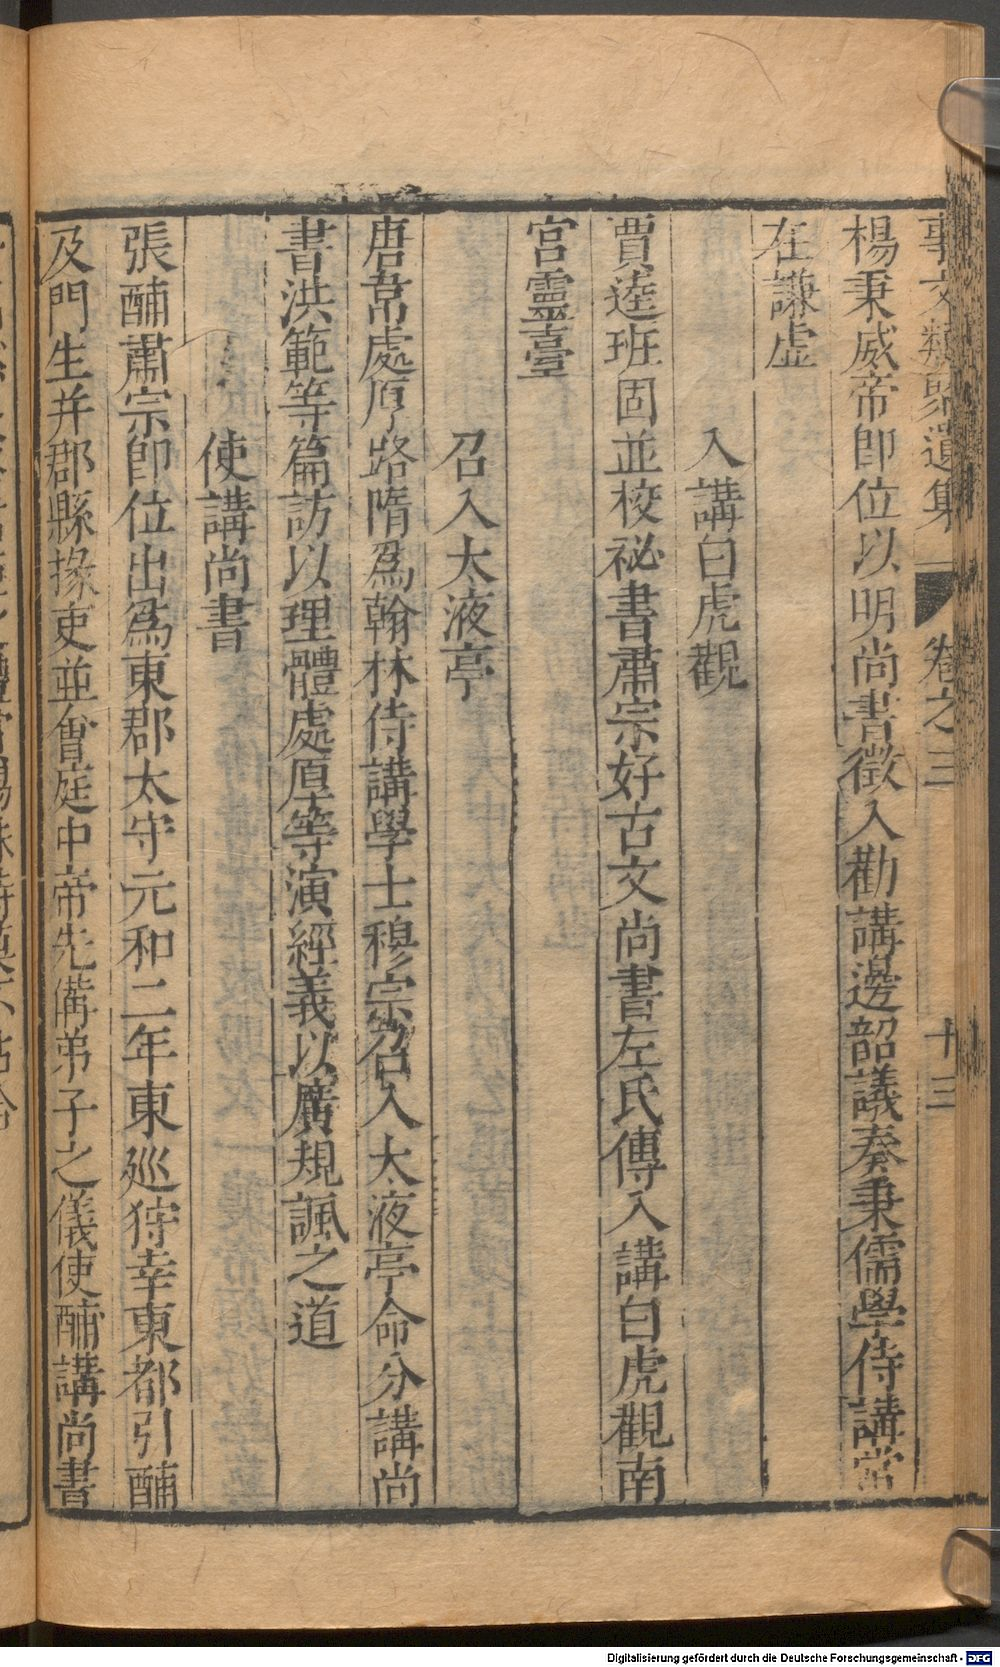 事文類聚遺集 卷之三 十三
楊秉威帝卽位以明尚書徵入勸講邊韶議奏秉儒學侍講當
在謙虛
入講白虎觀
賈逵班固並校祕書肅宗好古文尚書左氏傳入講白虎觀南
宮靈臺
召入太液亭
唐韋處厚路隋爲翰林侍講學士穆宗召入太液亭命分講尚
書洪範等篇訪以理體處厚等演經義以廣規諷之道
使講尚書
張酺肅宗卽位出爲東郡太守元和二年東廵狩幸東都引酺
及門生并郡縣掾吏並會庭中帝先備弟子之儀使酺講尚書
Digitalisierung gefördert durch die Deutsche Forschungsgemeinschaft - DFG